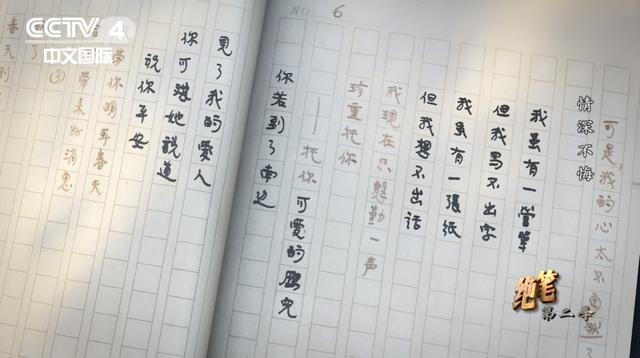 CCTV 4
中文国际
NO. 6
可是，我的心太不自然
情深不悔
我虽有一管筆
但我写不出字
我虽有一張纸
但我想不出话
我现在只慇勤一声
珍重托你
托你 可爱的鹏儿
你若到了南边
見了我的爱人
你可对她説道
说你平安
带你明年春天
带来好消息
③
绝笔
第二季